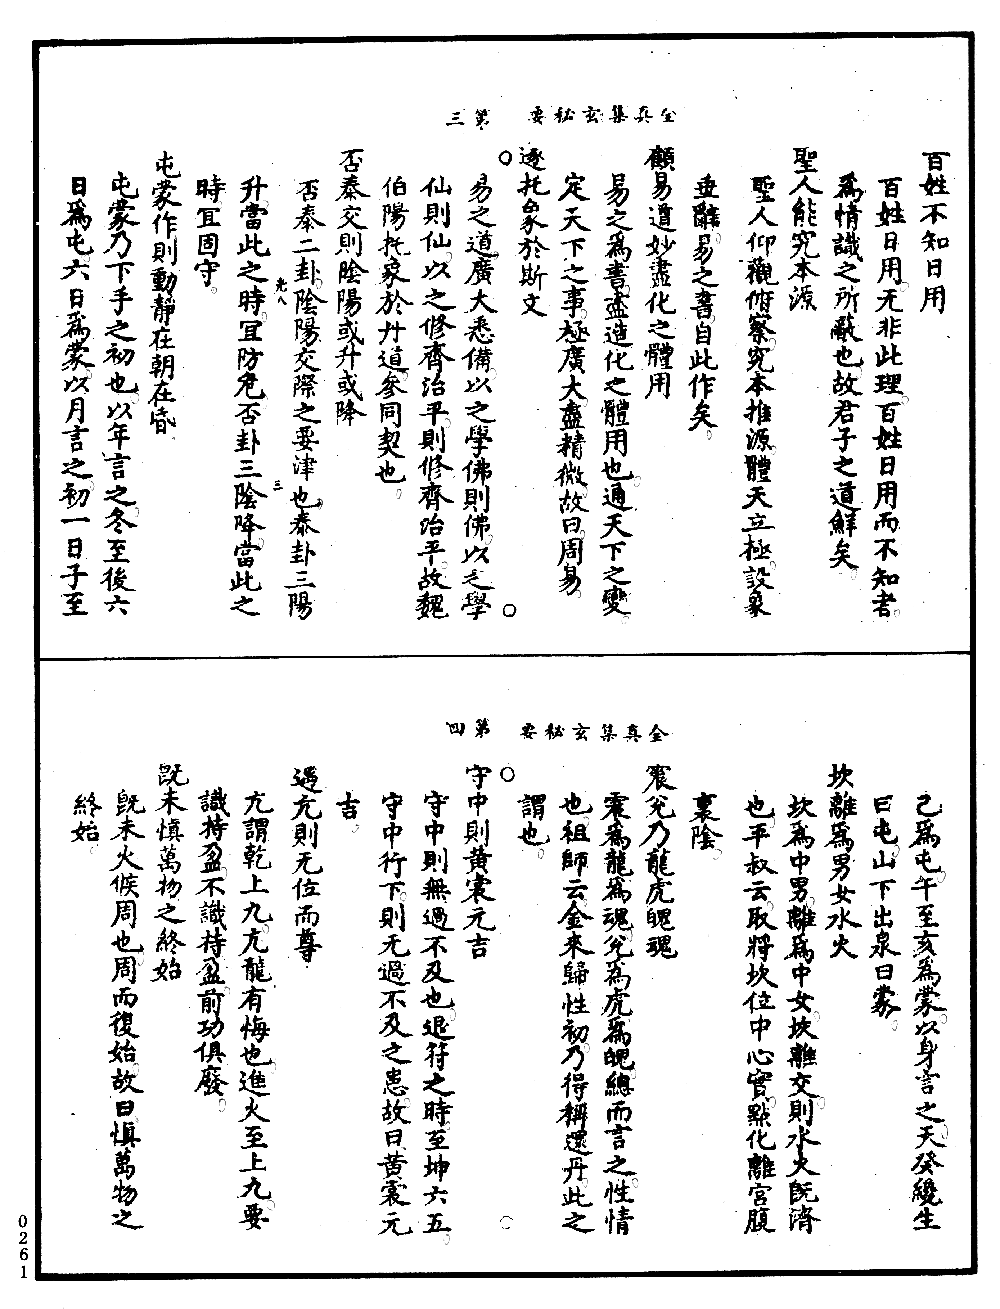 全真集玄秘要　第三
百姓不知日用
百姓日用无非此理百姓日用而不知者
爲情識之所蔽也故君子之道鮮矣
聖人能究本源
聖人仰觀俯察究本推源體天立極設象
垂辭易之書自此作矣
願易道妙盡化之體用
易之爲書盡造化之體用也通天下之變
定天下之事極廣大盡精微故曰周易
遂托象於斯文
○易之道廣大悉備以之學佛則佛以之學○
仙則仙以之修齊治平則修齊治平故魏
伯陽托象於丹道參同契也
否泰交則陰陽或升或降
否泰二卦陰陽交際之要津也泰卦三陽
光八　三
升當此之時宜防危否卦三陰降當此之
時宜固守
屯蒙作則動靜在朝在昏
屯蒙乃下手之初也以年言之冬至後六
日爲屯六日爲蒙以月言之初一日子至
全真集玄秘要　第四
己爲屯午至亥爲蒙以身言之天癸纔生
曰屯山下出泉曰蒙
坎離爲男女水火
坎爲中男離爲中女坎離交則水火既濟
也平叔云取將坎位中心實點化離宮腹
裏陰
震兌乃龍虎魄魂
震爲龍爲魂兌爲虎爲魄總而言之性情
也祖師云金來歸性初乃得稱還丹此之
謂也
○　○
守中則黃裳元吉
守中則無過不及也退符之時至坤六五
守中行下則无過不及之患故曰黃裳元
吉
遇亢則无位而尊
亢謂乾上九亢龍有悔也進火至上九要
識持盈不識持盈前功俱廢
既未慎萬物之終始
既未火候周也周而復始故曰慎萬物之
終始
0261